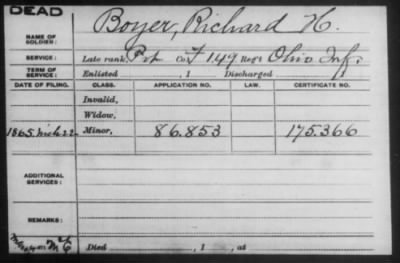 DEAD
NAME OF SOLDIER: Boyer, Richard H.
SERVICE: Late rank, Pvt Co. F 149 Reg't Ohio Inf.
TERM OF SERVICE: Enlisted , 1 Discharged
DATE OF FILING. CLASS. APPLICATION NO. LAW. CERTIFICATE NO.
Invalid,
Widow,
1865, Mch 22 Minor, 86.853 175.366
ADDITIONAL SERVICES:
REMARKS:
Died , 1 , at